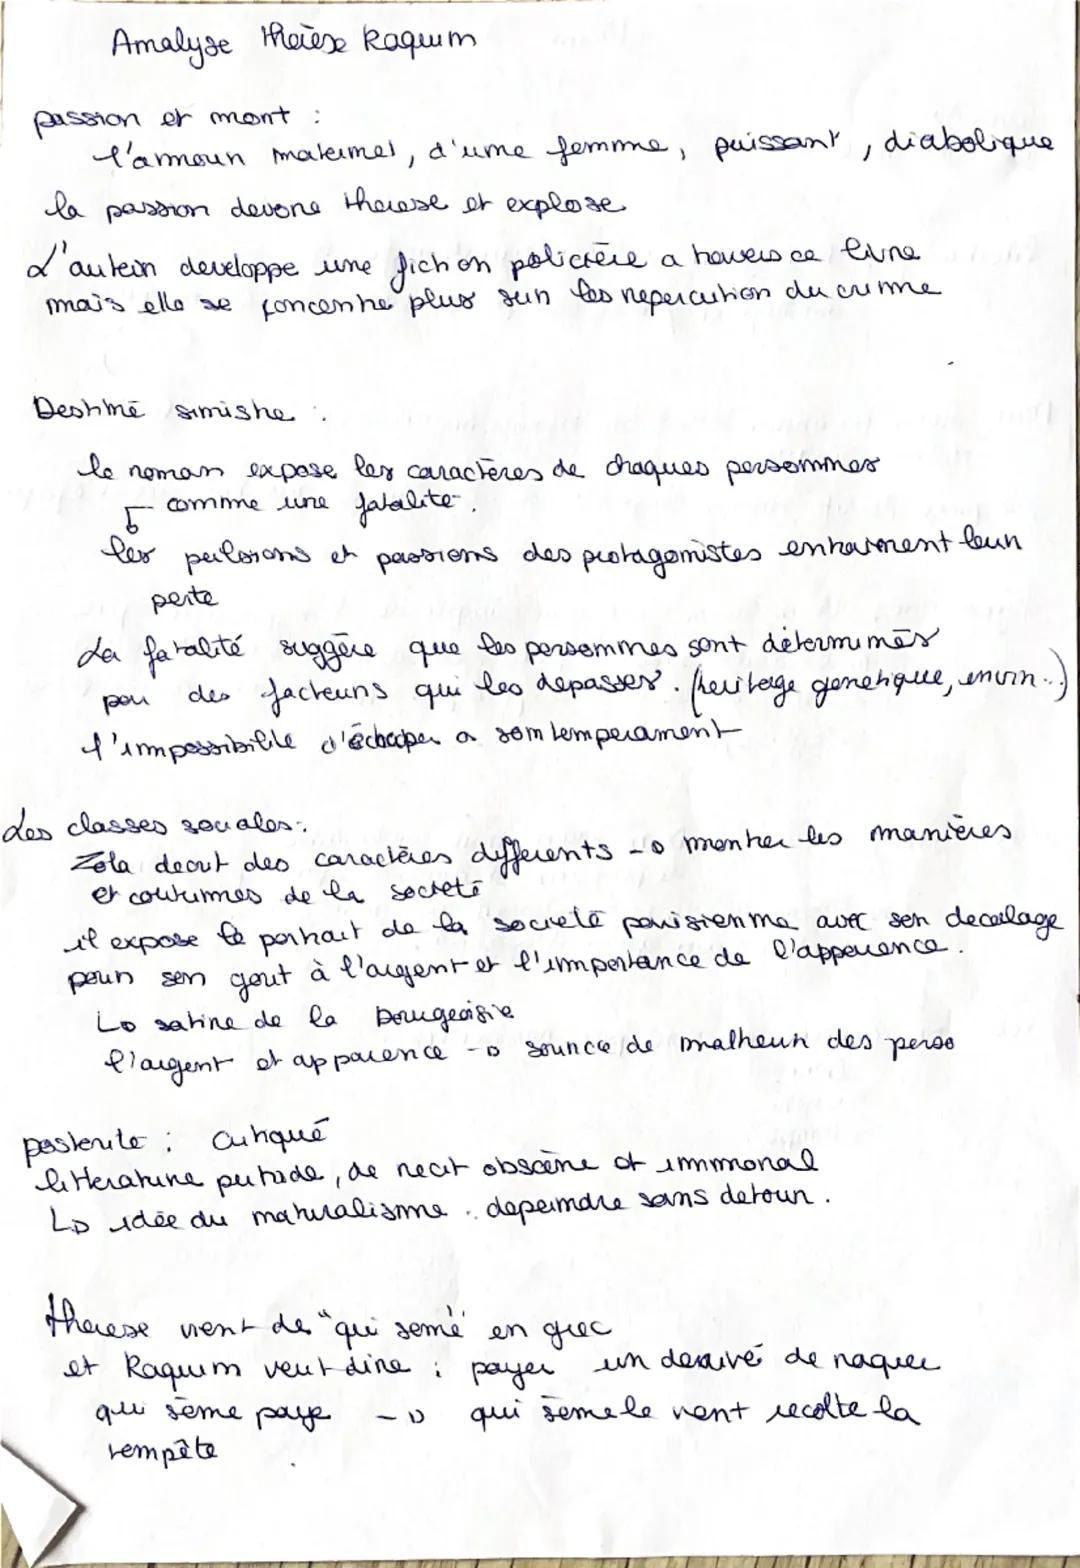 Analyse thérèse Raquin
passion et mort :
l'amour maternel, d'une femme, puissant, diabolique
la passion devore therese et explose
L'auteur developpe une fiction policière a travers ce livre
mais elle se concentre plus sur les repercution du crime
Destiné sinistre :
le roman expose les caractères de chaques personnes
comme une fatalite.
les pulsions et passions des protagonistes entrainent leur
perte
La fatalité suggère que les personnes sont déterminés
par des facteurs qui les depasser. (heritage genetique, envir...)
l'impossibilile d'échaper a son temperament
Les classes sociales :
Zola decrit des caractères differents → montrer les manières
et coutumes de la societé
il expose le portrait de la societé parisienne avec son decalage
pour son gout à l'argent et l'importance de l'apparence.
↳ satire de la bourgeoisie
l'argent et apparence → source de malheur des perso
posterite : critiqué
litterature putride, de recit obscène et immoral
↳ idée du naturalisme : depeindre sans detour.
therese vient de "qui semè" en grec
et Raquin veut dire : payer un derivé de raquer
qui sème paye → qui sème le vent recolte la
tempête